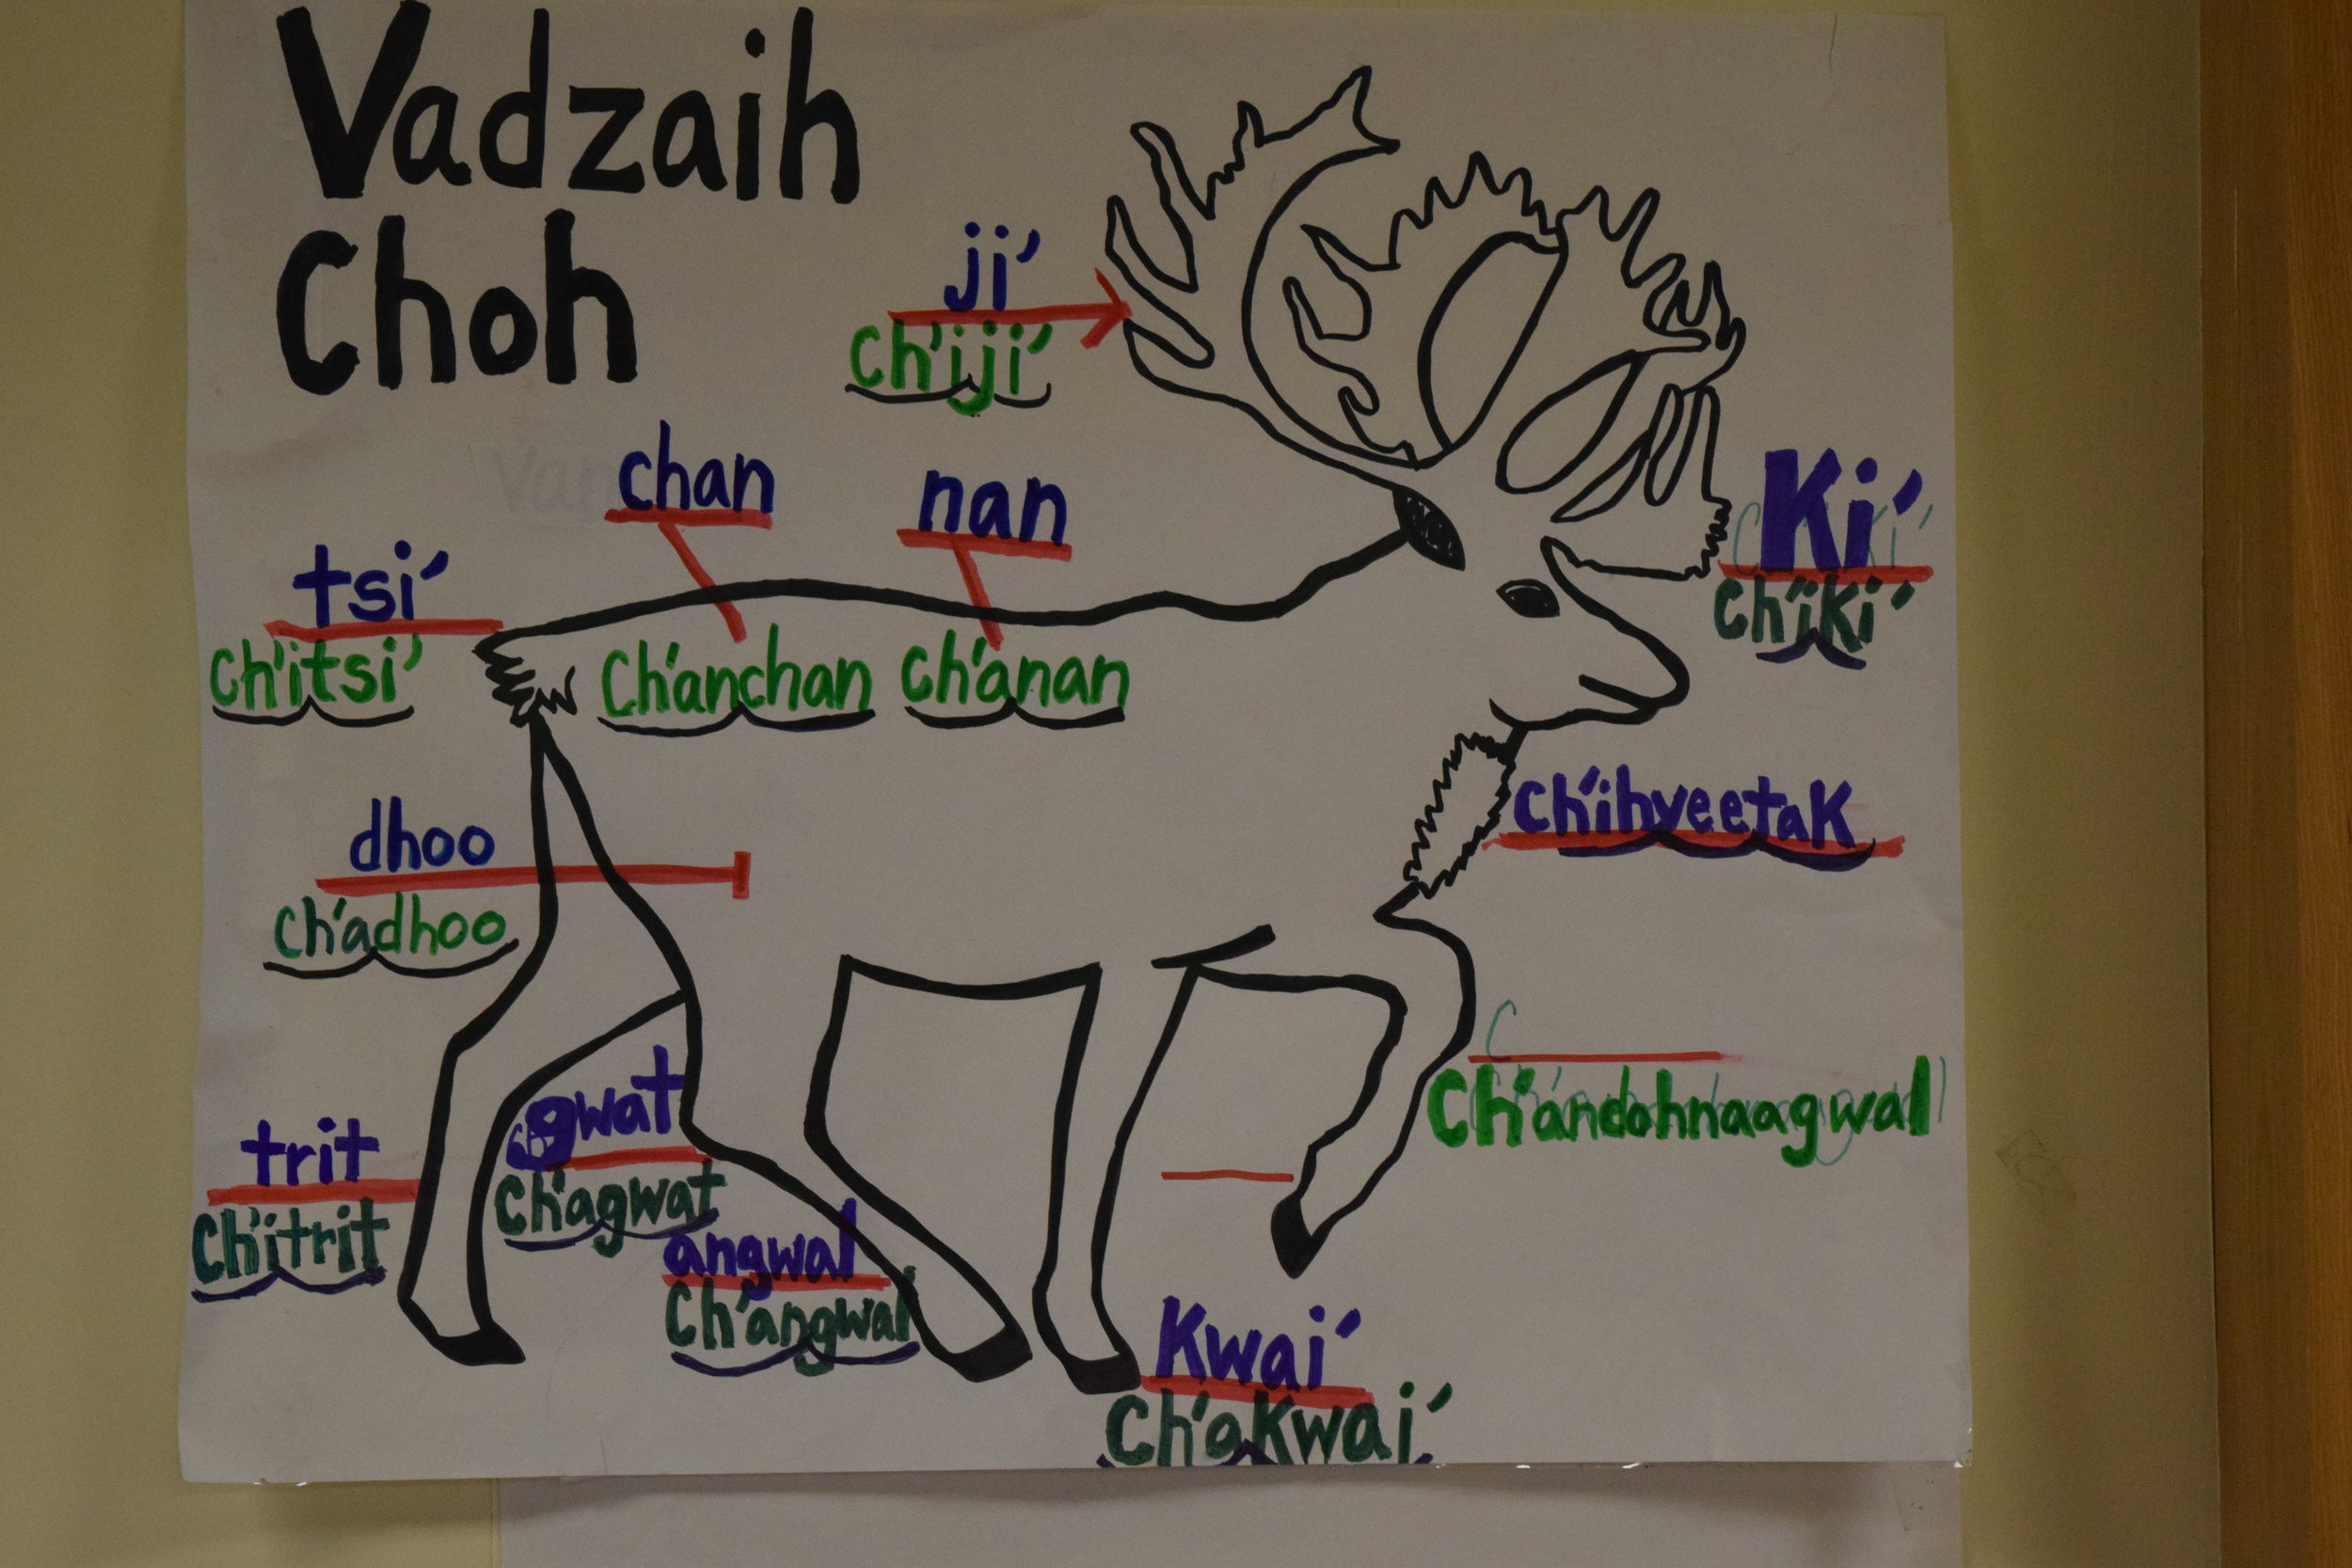 Vadzaih
Choh
ji'
ch'iji'
chan
nan
Ki'
tsi'
Ch'iKi'
Ch'itsi'
Ch'anchan
ch'anan
Ch'ihveetaK
dhoo
ch'adhoo
Ch'andohnaagwal
gwat
trit
Ch'agwat
Ch'itrit
angwal
Ch'angwal
Kwai'
Ch'aKwai'